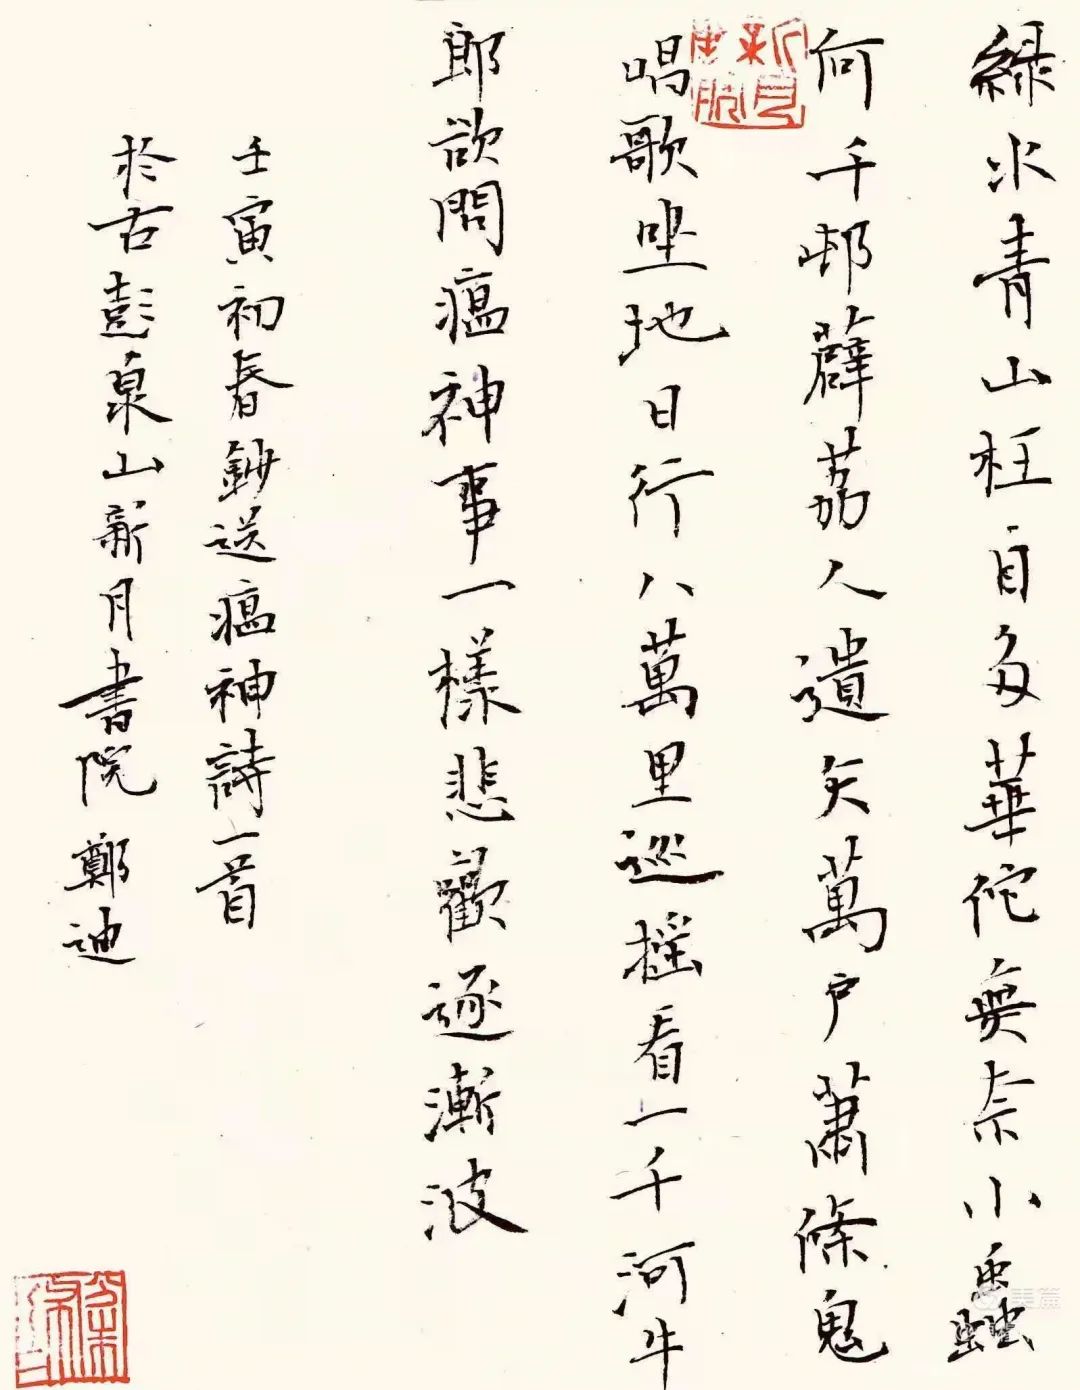 綠水青山枉自多華佗無奈小蟲
何千邨薜荔人遺矢萬戶蕭條鬼
唱歌坐地日行八萬里巡搖看一千河牛
郎欲問瘟神事一樣悲歡逐漸波
壬寅初春鈔送瘟神詩一首
於古彭泉山新月書院 鄭迪
新月書院
美篇